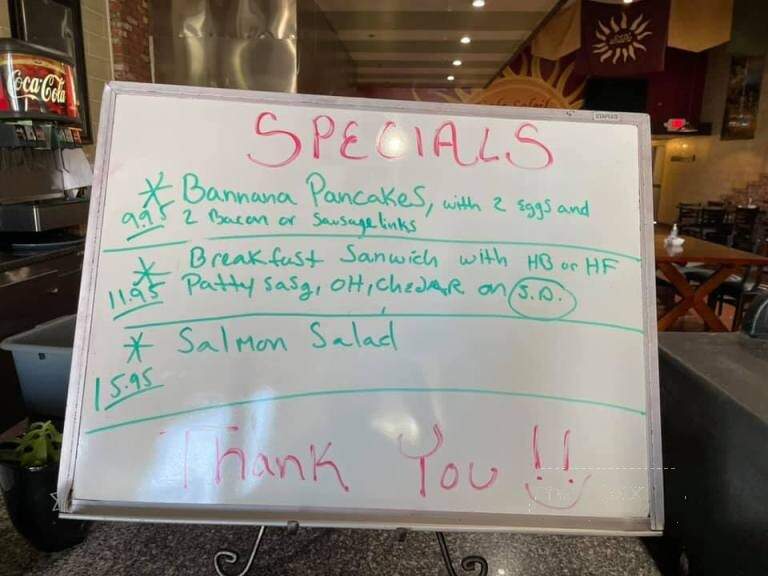 Coca-Cola
STAPLES
SPECIALS
* Bannana Pancakes, with 2 eggs and
9.95 2 Bacon or Sausage links
* Breakfast Sanwich with HB or HF
11.95 Patty sasg, OH, chedar on S.D.
* Salmon Salad
15.95
Thank You !!